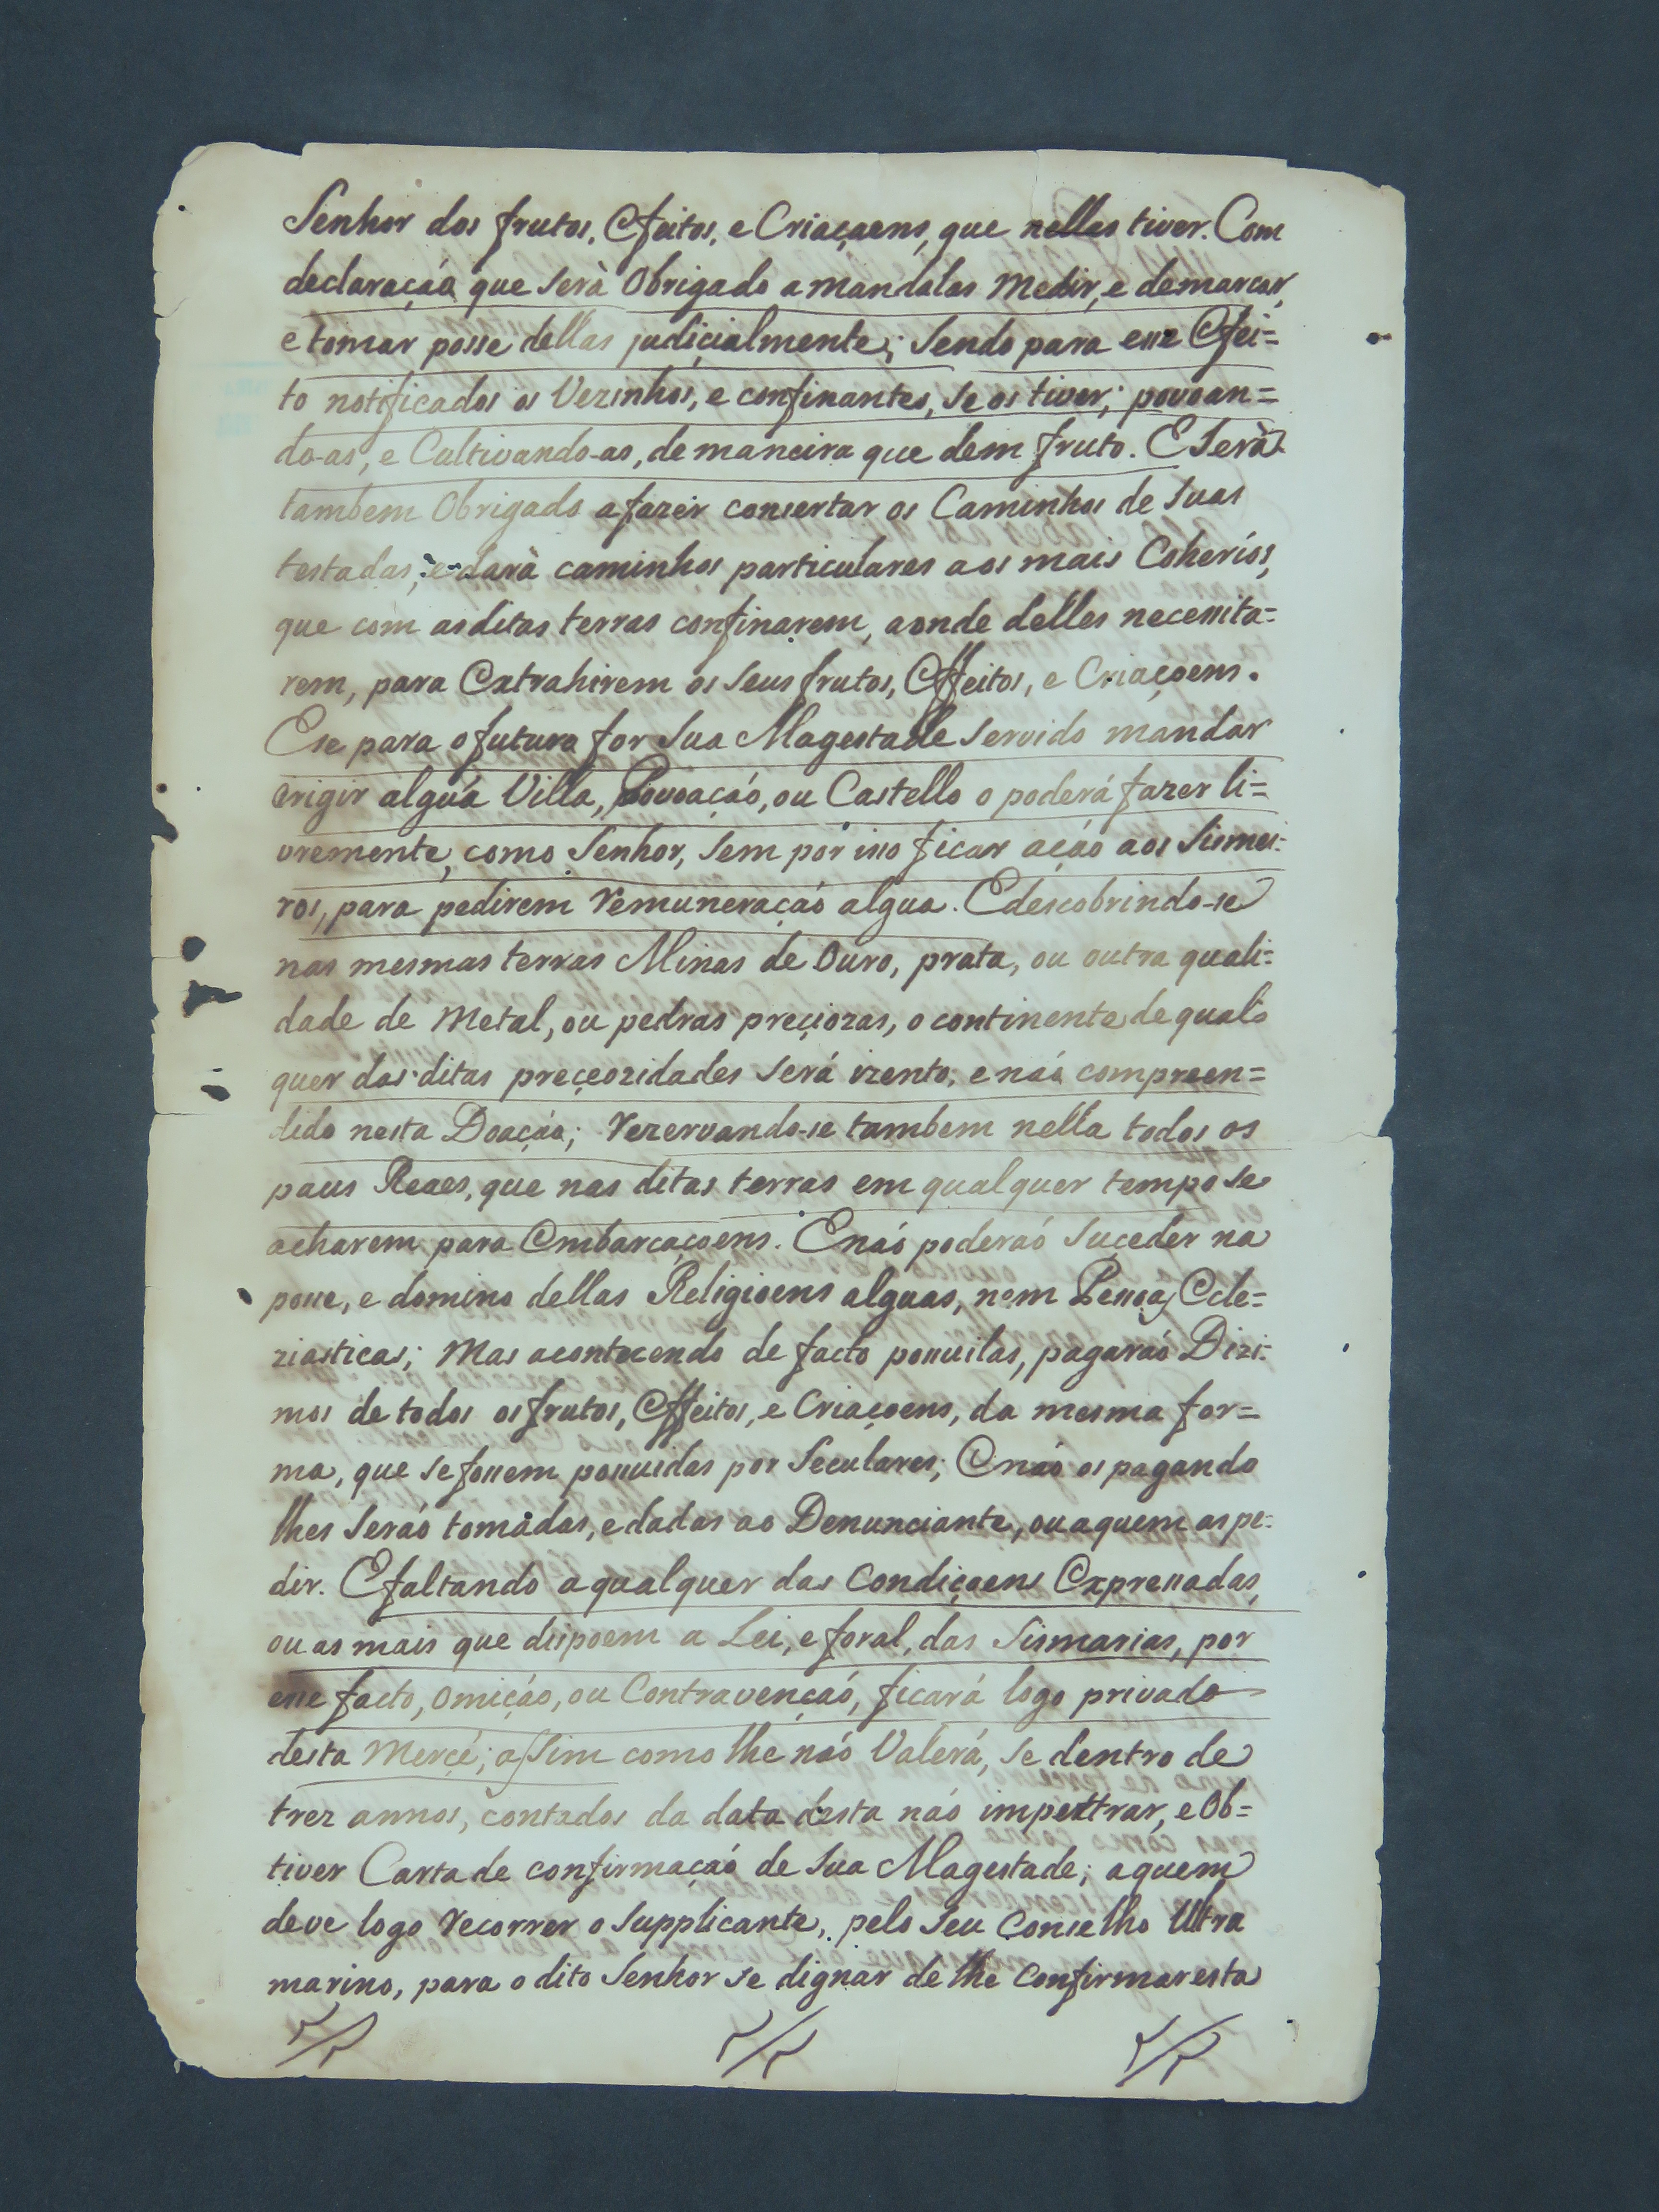 Senhor dos frutos, Efeitos, e Criaçaens, que nellas tiver. Com
declaraçaó que serà Obrigado a mandalas Medir, e demarcar,
e tomar posse dellas judiçialmente; Sendo para esse Efei=
to notificados os Vezinhos, e confinantes, se os tiver; povoan=
do-as, e Cultivando-as, de maneira que dem fruto. E Serà
tambem Obrigado a fazer consertar os Caminhos de Suas
testadas; e darà caminhos particulares aos mais Coherios,
que com as ditas terras confinarem, aonde delles necessita=
rem, para Extrahirem os Seus frutos, Effeitos, e Criaçoens.
E se para o futuro for Sua Magestade Servido mandar
erigir alguá Villa, Povoaçaó, ou Castello o poderá fazer li=
vremente, como Senhor, Sem por isso ficar açaó aos Sismei=
ros, para pedirem Remuneraçaó algua. E descobrindo-se
nas mesmas terras Minas de Ouro, prata, ou outra quali=
dade de Metal, ou pedras preçiozas, o continente de qual=
quer das ditas preçeozidades Será izento; e naó compreen=
dido nesta Doaçaó; Rezervando-se tambem nella todos os
paus Reaes, que nas ditas terras em qualquer tempo se
acharem para Embarcaçoens. E naó poderaó Suçeder na
posse, e domino dellas Religioens alguas, nem Pessoas Ecle=
ziasticas; Mas acontecendo de facto possuilas, pagaráó Dizi=
mos de todos os frutos, Effeitos, e Criaçoens, da mesma for=
ma, que se fossem possuidas por Seculares; E naó os pagando
lhes Seraó tomadas, e dadas ao Denunciante, ou a quem as pe=
dir. E faltando a qualquer das Condiçaens Expressadas,
ou as mais que dispoem a Lei, e foral, das Sismarias, por
esse facto, Omiçáo, ou Contravençaó, ficará logo privado
desta Merçé; assim como lhe naó Valerá, se dentro de
trez annos, contados da data desta naó impettrar, e Ob=
tiver Carta de confirmaçaó de Sua Magestade; a quem
deve logo Recorrer o Supplicante, pelo Seu Conselho Ultra
marino, para o dito Senhor se dignar de lhe Confirmar esta